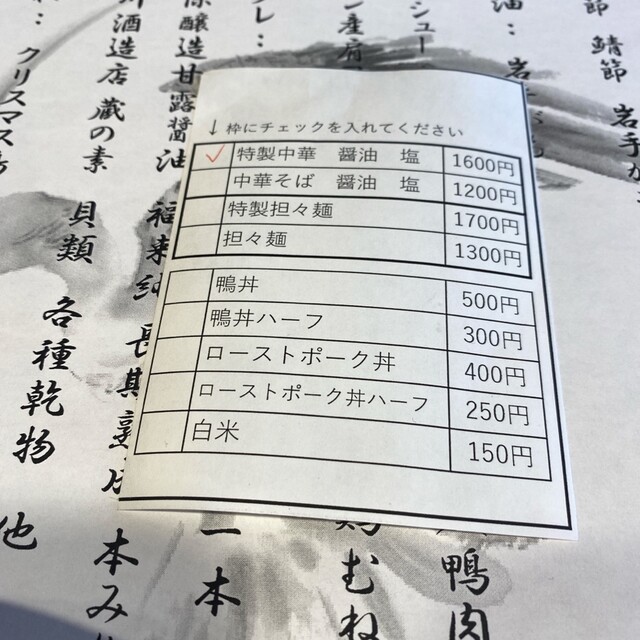 ↓枠にチェックを入れてください
✓ 特製中華 醤油 塩 1600円
中華そば 醤油 塩 1200円
特製担々麺 1700円
担々麺 1300円
鴨丼 500円
鴨丼ハーフ 300円
ローストポーク丼 400円
ローストポーク丼ハーフ 250円
白米 150円
節 鯖節 岩手が
油:岩
シュー
産肩
ダレ:
醸造甘露醤油
酒造店 蔵の素
クリスマス
貝類
各種乾物 他
本み
一本
むね
鴨肉